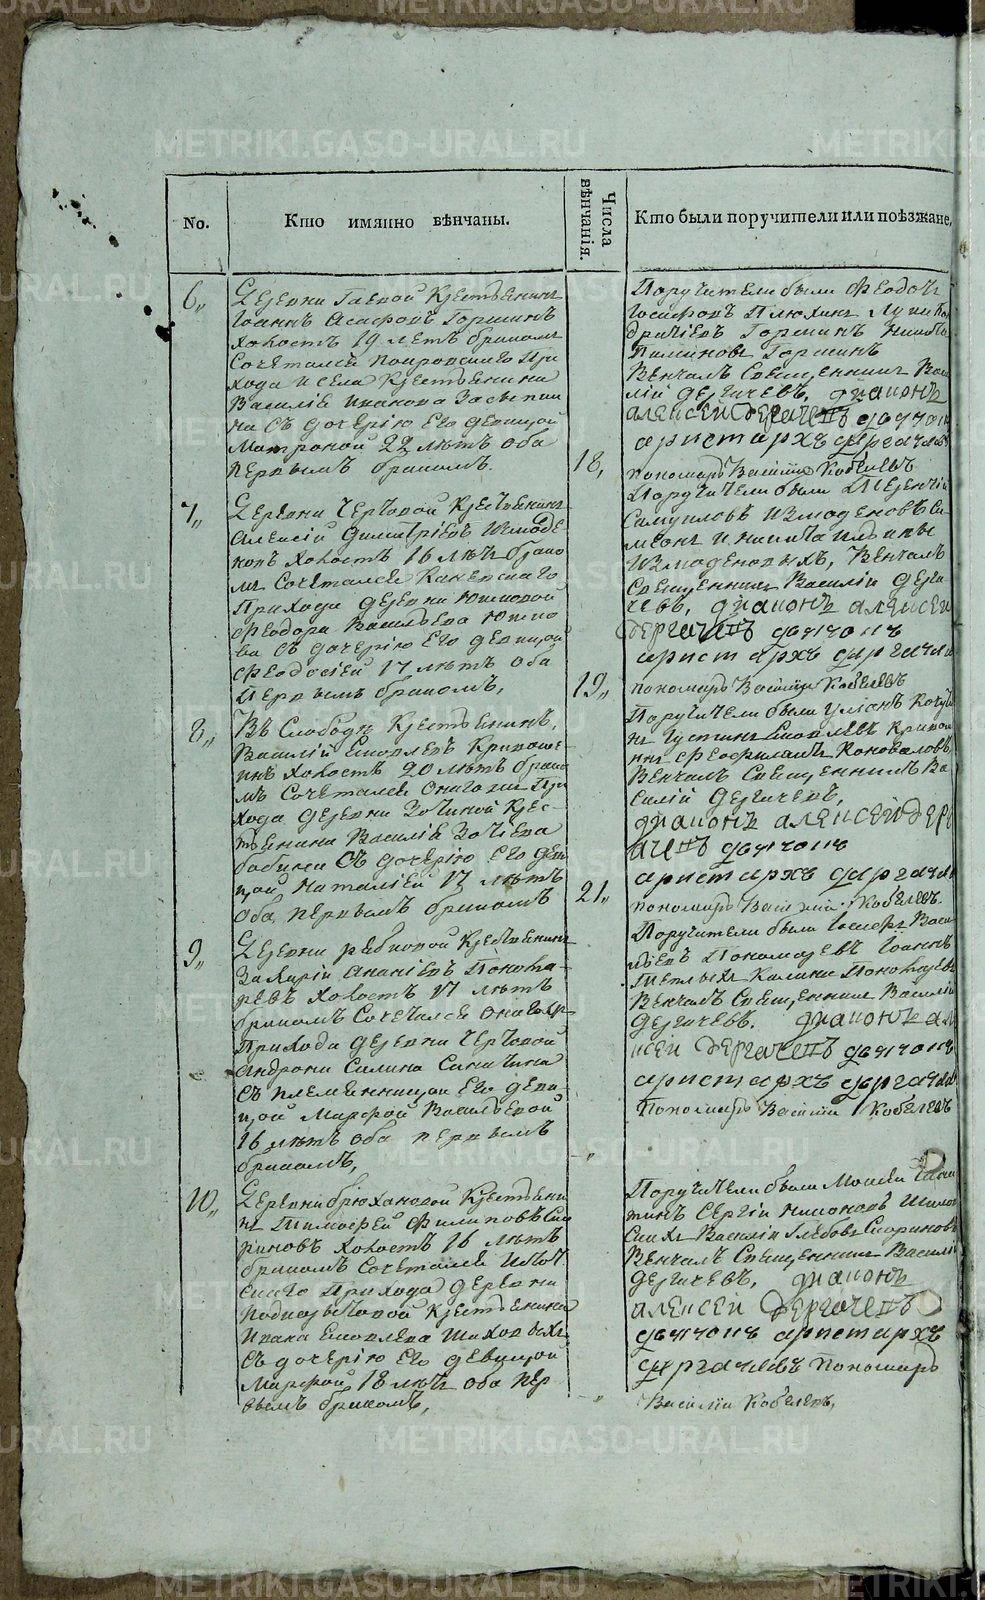 No.
Кто имянно вѣнчаны.
Числа вѣнчанія.
Кто были поручители или поѣзжане.
6,,
Деревни Гаевой Крестьянинъ
Іоаннъ Асафовъ Горшинъ
холостъ 19 летъ бракомъ
Сочетался Покровскаго При
хода и села Крестьянина
Василія Иванова
на съ дочерью его девицой
Матроной 22 летъ оба
первымъ бракомъ.
Поручители были Феодотъ
Іосифовъ Плюхинъ
Горшинъ
Пиминовъ Горшинъ
Венчалъ Священникъ Васи
лій Дергачевъ, диаконъ
алексей Дергачевъ дьячокъ
аристархъ дергачевъ
18,
пономарь Василій Кобелевъ
7,,
Деревни Чертовой Крестьянинъ
Алексій Димитріевъ Измоде
новъ холостъ 16 летъ брако
мъ Сочетался
Прихода деревни Юшковой
Феодора Васильева Юшко
ва съ дочерію его девицой
Феодосіей 17 летъ оба
первымъ бракомъ,
Поручители были Терентій
Самуиловъ Измоденовъ Си
меонъ и Никита
Измоденовыхъ, Венчалъ
Священникъ Василій Дерга
чевъ, диаконъ алексей
Дергачевъ дьячокъ
аристархъ дергачевъ
19,,
пономарь Василій Кобелевъ
8,,
Въ Слободе Крестьянинъ
Василій Яковлевъ Кривоше
инъ холостъ 20 летъ брако
мъ Сочетался Онагоже При
хода деревни Зотиной Крес
тьянина Василія
съ дочерію его деви
цой Наталіей 17 летъ
оба первымъ бракомъ
Поручители были
Іустинъ Яковлевъ Кривоше
инъ Феофилактъ Коноваловъ,
Венчалъ Священникъ Ва
силій Дергачевъ,
диаконъ алексей Дерг
ачевъ дьячокъ
аристархъ дергачевъ
21,,
пономарь Василій Кобелевъ.
9,,
Деревни Рябковой Крестьянинъ
Захарій Ананіевъ Понома
ревъ холостъ 17 летъ
бракомъ Сочетался Онагожъ
Прихода деревни Чертовой
Андрона Силина
съ племянницой его деви
цой Марфой Васильевой
16 летъ оба первымъ
бракомъ,
Поручители были Іосифъ Васи
льевъ Пономаревъ Іоаннъ
Калина Пономаревъ
Венчалъ Священникъ Василій
Дергачевъ. диаконъ ал
ексей Дергачевъ дьячокъ
аристархъ дергачевъ
Пономарь Василій Кобелевъ
,,
10,,
Деревни Брюхановой Крестьяни
нъ Тимофей Филиповъ Ско
риновъ холостъ 16 летъ
бракомъ Сочетался
Прихода деревни
Крестьянина
Ивана Яковлева
съ дочерію его девицой
Марфой 18 летъ оба пер
вымъ бракомъ,
Поручители были Моисей
Сергій Никоновъ
Василій Глебовъ Скориновъ
Венчалъ Священникъ Василій
Дергачевъ, диаконъ
алексей Дергачевъ
дьячокъ аристархъ
дергачевъ Пономарь
,,
Василій Кобелевъ,
METRIKI.GASO-URAL.RU